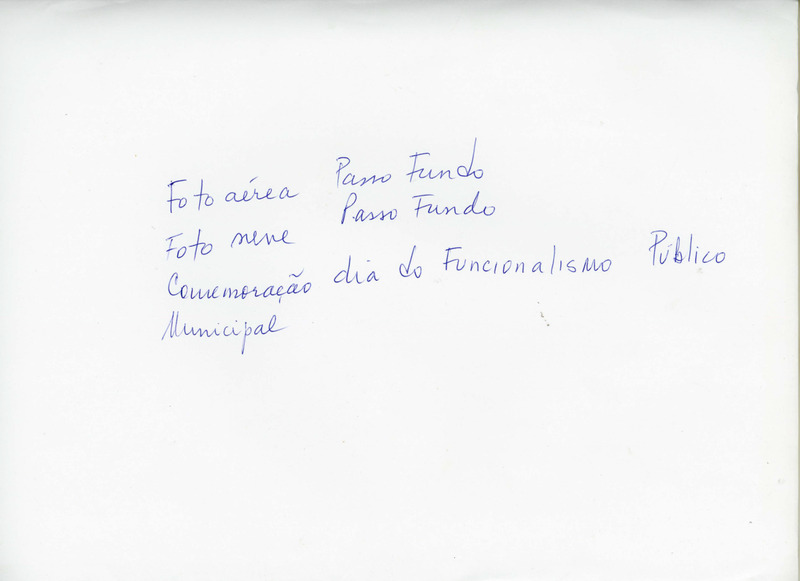 Foto aérea Passo Fundo
Foto neve Passo Fundo
Comemoração dia do Funcionalismo Público
Municipal